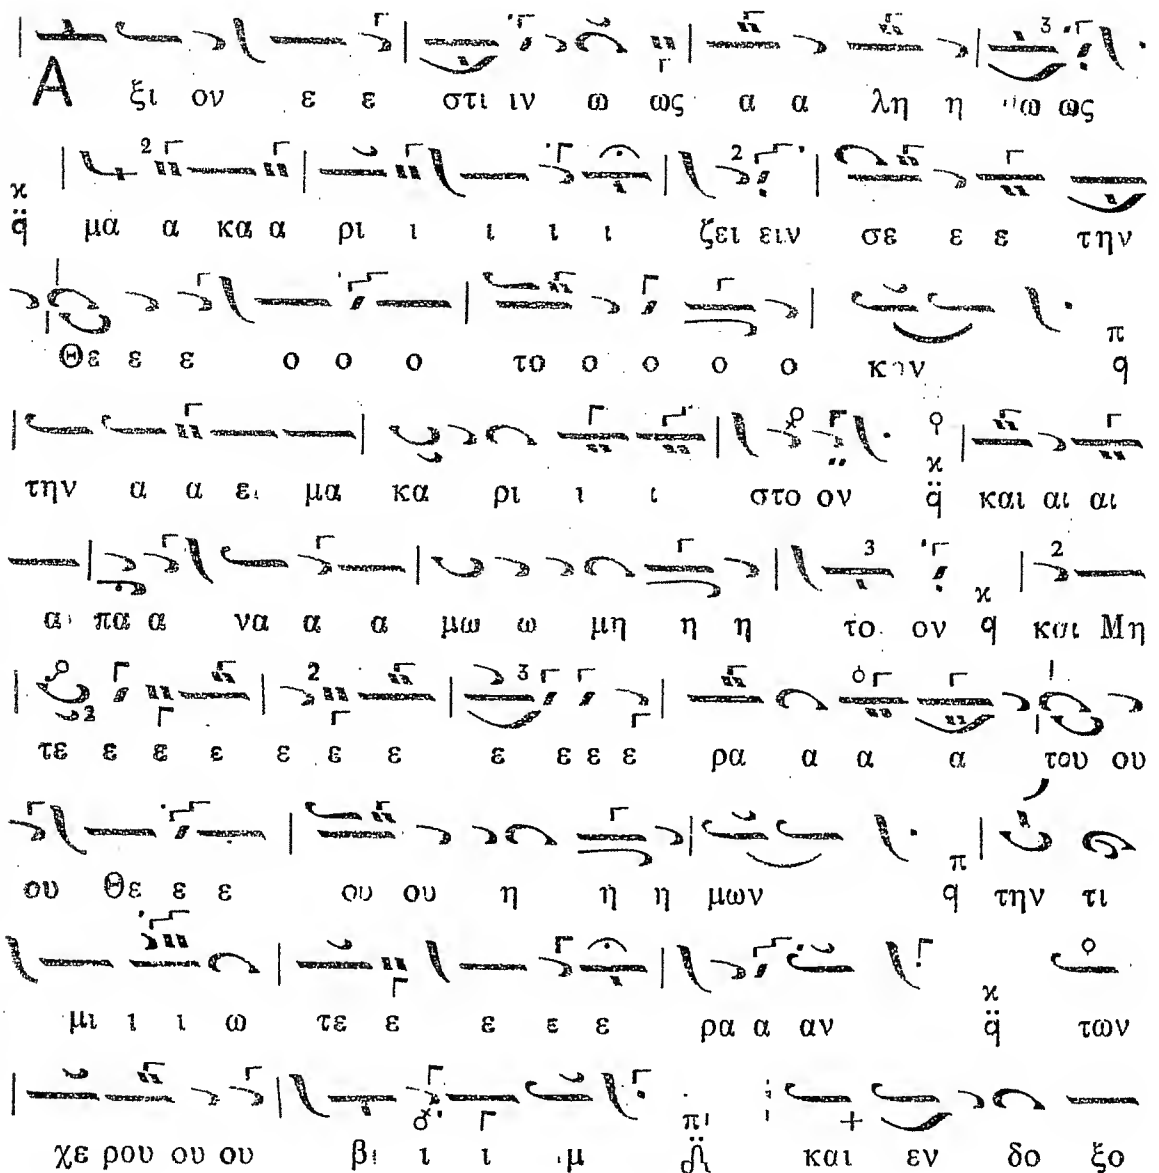 Α ξι ον ε ε στι ιν ω ως α α λη η ω ως
μα α κα α ρι ι ι ι ι ζει ειν σε ε ε την
Θε ε ε ο ο ο το ο ο ο ο κον
την α α ει μα κα ρι ι ι στο ον και αι αι
α πα α να α α μω ω μη η η το ον και Μη
τε ε ε ε ε ε ε ε ε ε ε ρα α α α του ου
ου Θε ε ε ου ου η η η μων την τι
μι ι ι ω τε ε ε ε ε ρα α αν των
χε ρου ου ου βι ι ι ιμ και εν δο ξο